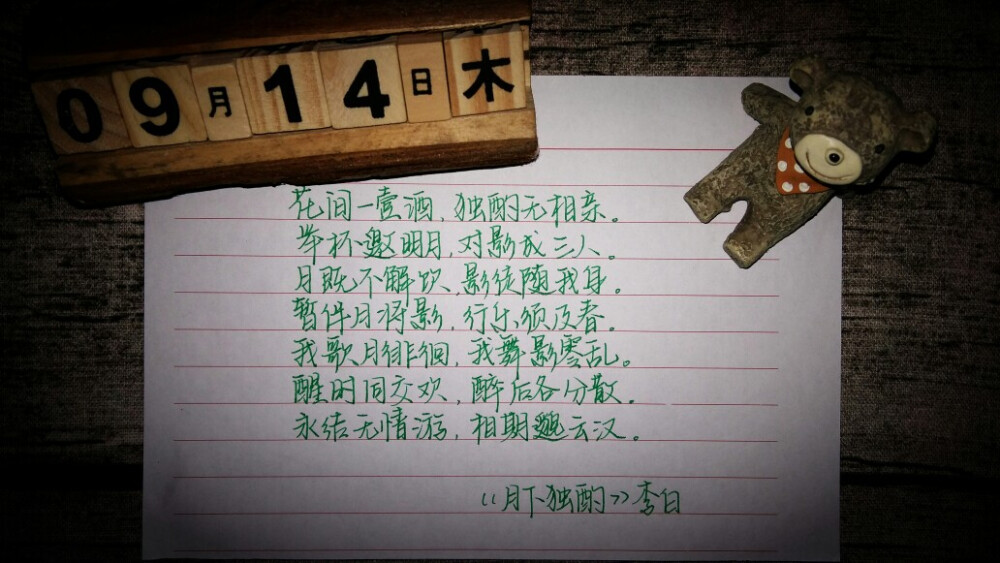 09月14日木
花间一壹酒，独酌无相亲。
举杯邀明月，对影成三人。
月既不解饮，影徒随我身。
暂伴月将影，行乐须及春。
我歌月徘徊，我舞影零乱。
醒时同交欢，醉后各分散。
永结无情游，相期邈云汉。
《月下独酌》李白